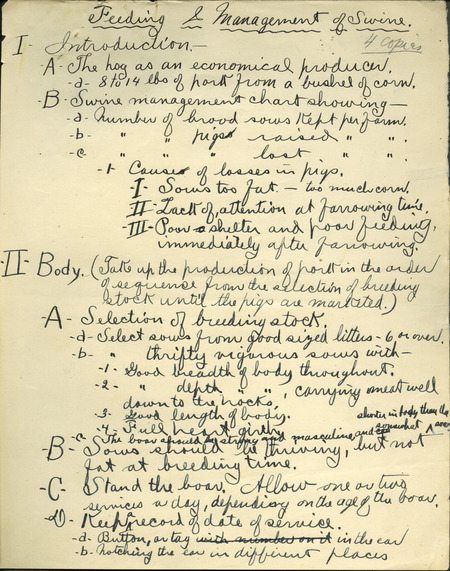 Feeding & Management of Swine.
4 copies
I- Introduction.-
-A- The hog as an economical producer.
-a- 8 to 14 lbs of pork from a bushel of corn.
-B- Swine management chart showing-
-a- Number of brood sows kept per farm.
-b- " " pigs raised " " .
-c- " " " lost " " .
-1- Causes of losses in pigs.
I- Sows too fat - too much corn.
II- Lack of attention at farrowing time.
III- Poor shelter and poor feeding,
immediately after farrowing.
-II- Body. (Take up the production of pork in the order
of sequense from the selection of breeding
stock until the pigs are marketed.)
A- Selection of breeding stock.
-a- Select sows from good sized litters - 6 or over.
-b- " thrifty vigorous sows with-
-1- Good breadth of body throughout.
-2- " depth " " , carrying meat well
down to the hocks,
-3- Good length of body.
-4- Full heart girth.
-c- The boar should be strong and masculine and somewhat
shorter in body than the sows
B- Sows should be thriving, but not
fat at breeding time.
-C- Stand the boar. Allow one or two
services a day, depending on the age of the boar.
-D- Keep a record of date of service.
-a- Button, or tag with number on it in the ear
-b- Notching the ear in different places